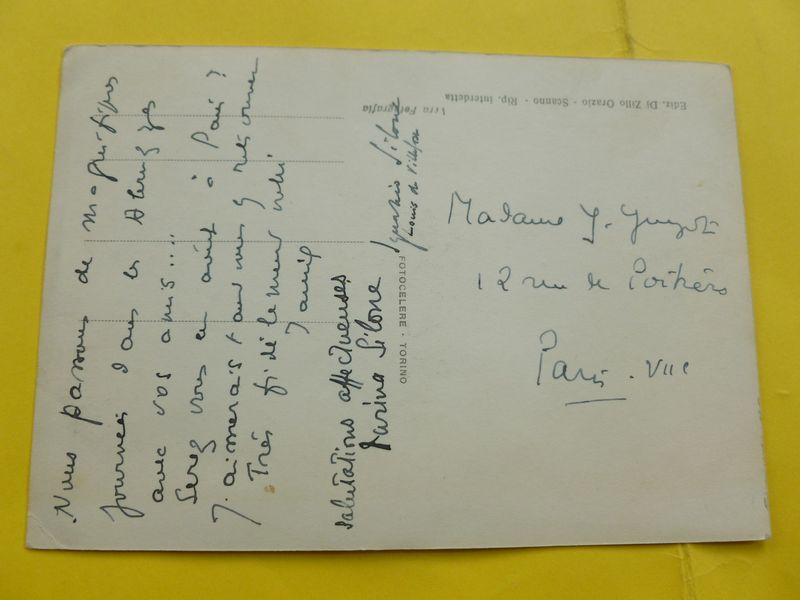 Nous passons de magnifiques
journées dans les Abruzzes
avec vos amis....
Serez vous en août à Paris?
J'aimerais tant vous y retrouver
Très fidèlement votre
salutations affectueuses
Darina Silone
Ignazio Silone
Louis de Villefosse
Vera Fotografia
Ediz. Di Zillo Orazio - Scanno - Rip. interdetta
FOTOCELERE - TORINO
Madame Y. Guyot
12 rue de Poitiers
Paris. VIIe